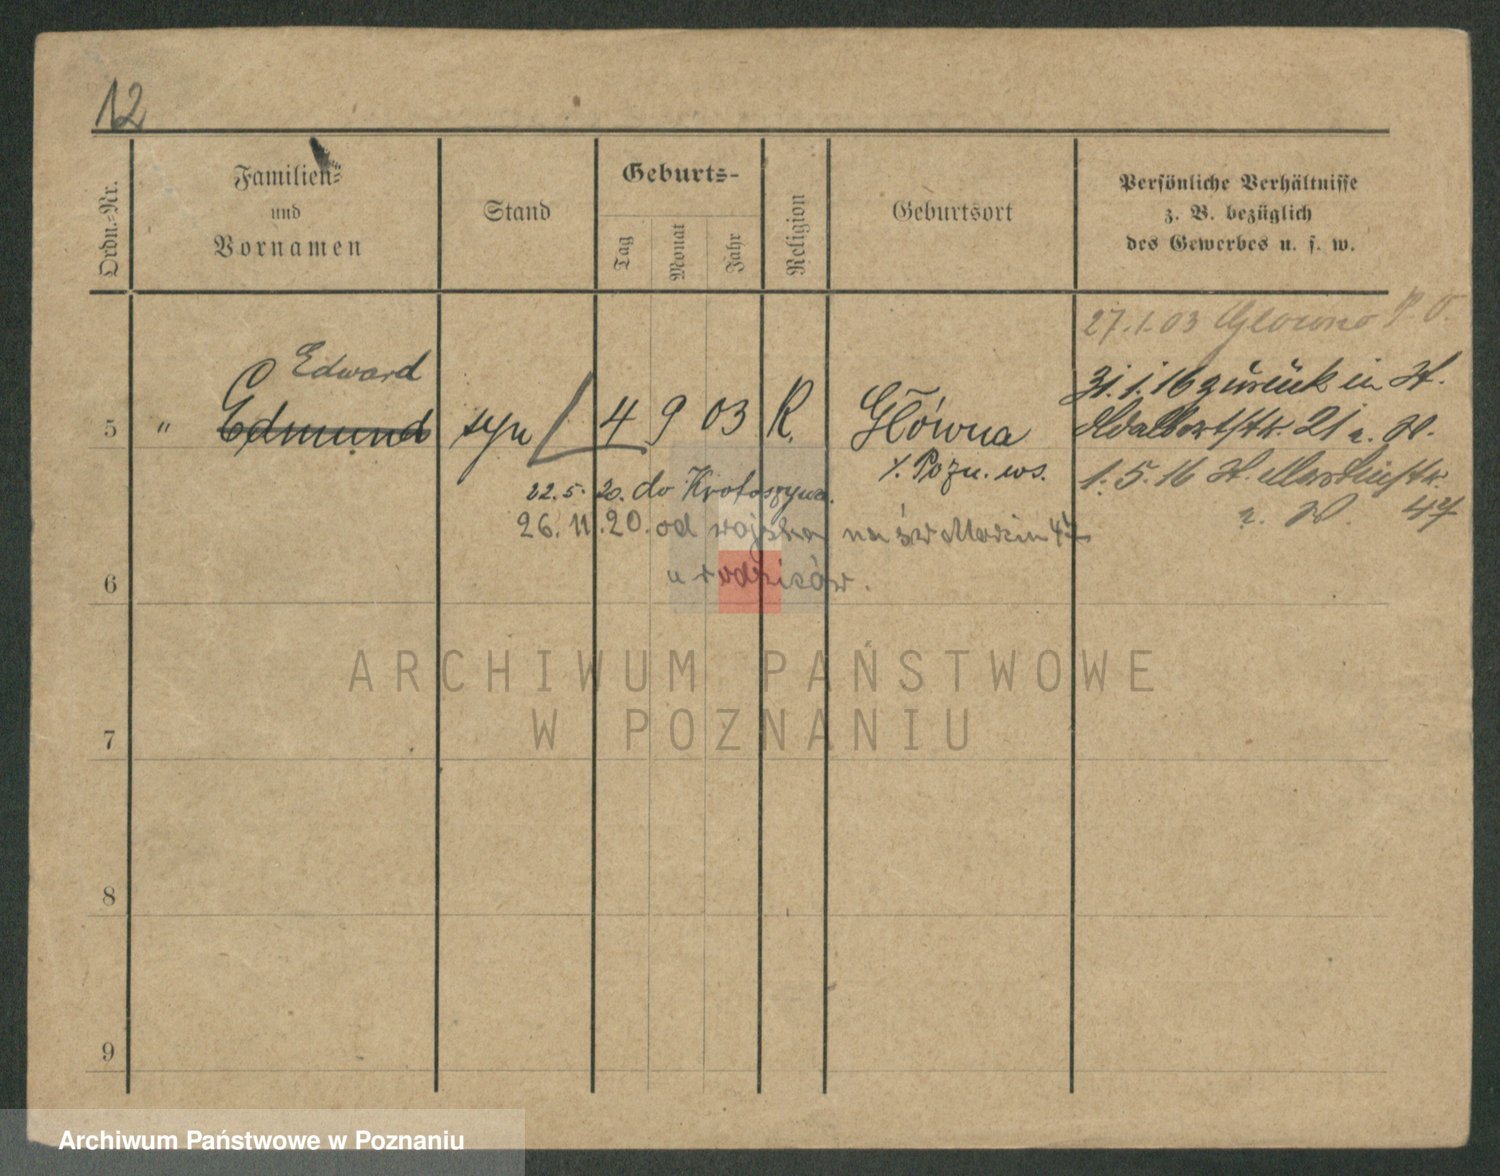 12
Ordn.-Nr.
Familien-
und
Vornamen
Stand
Geburts-
Tag
Monat
Jahr
Religion
Geburtsort
Persönliche Verhältnisse
z. B. bezüglich
des Gewerbes u. s. w.
27.1.03 Glowno P. O.
Edward
5 " Edmund syn 4 9 03 R. Główna
31.1.16 zurück in St.
Adalbertstr. 21
%. Pozn. ws.
1.5.16 St. Martinstr.
47
22.5.20. do Krotoszyna.
26.11.20. od wojska na św Marcin 47
u rodziców.
6
7
8
9
ARCHIWUM PAŃSTWOWE
W POZNANIU
Archiwum Państwowe w Poznaniu